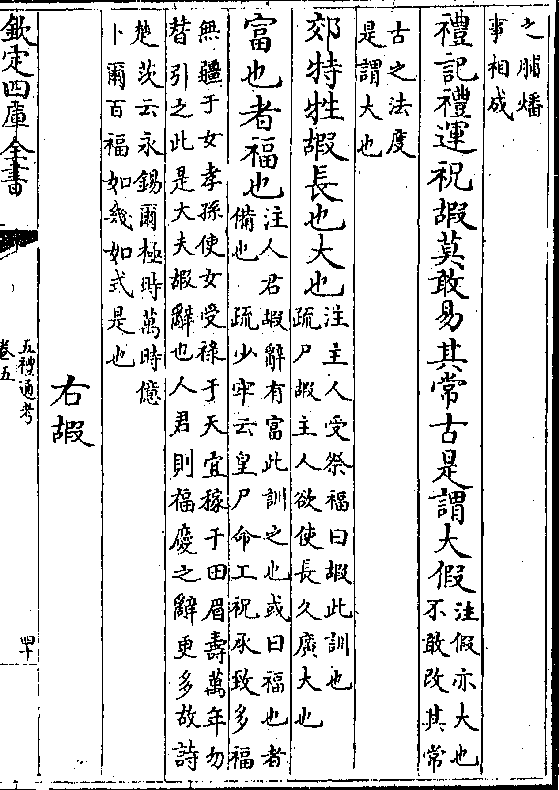 之膰燔
事相成
禮記禮運祝嘏莫敢易其常古是謂大假
注假亦大也
不敢改其常
古之法度
是謂大也
郊特牲嘏長也大也
注主人受祭福曰嘏此訓也
疏尸嘏主人欲使長久廣大也
富也者福也
注人君嘏辭有富此訓之也或曰福也者
備也 疏少牢云皇尸命工祝承致多福
無疆于女孝孫使女受祿于天宜稼于田眉壽萬年勿
替引之此是大夫嘏辭也人君則福慶之辭更多故詩
楚茨云永錫爾極時萬時億
卜爾百福如幾如式是也
右嘏
欽定四庫全書
五禮通考
卷五
四十